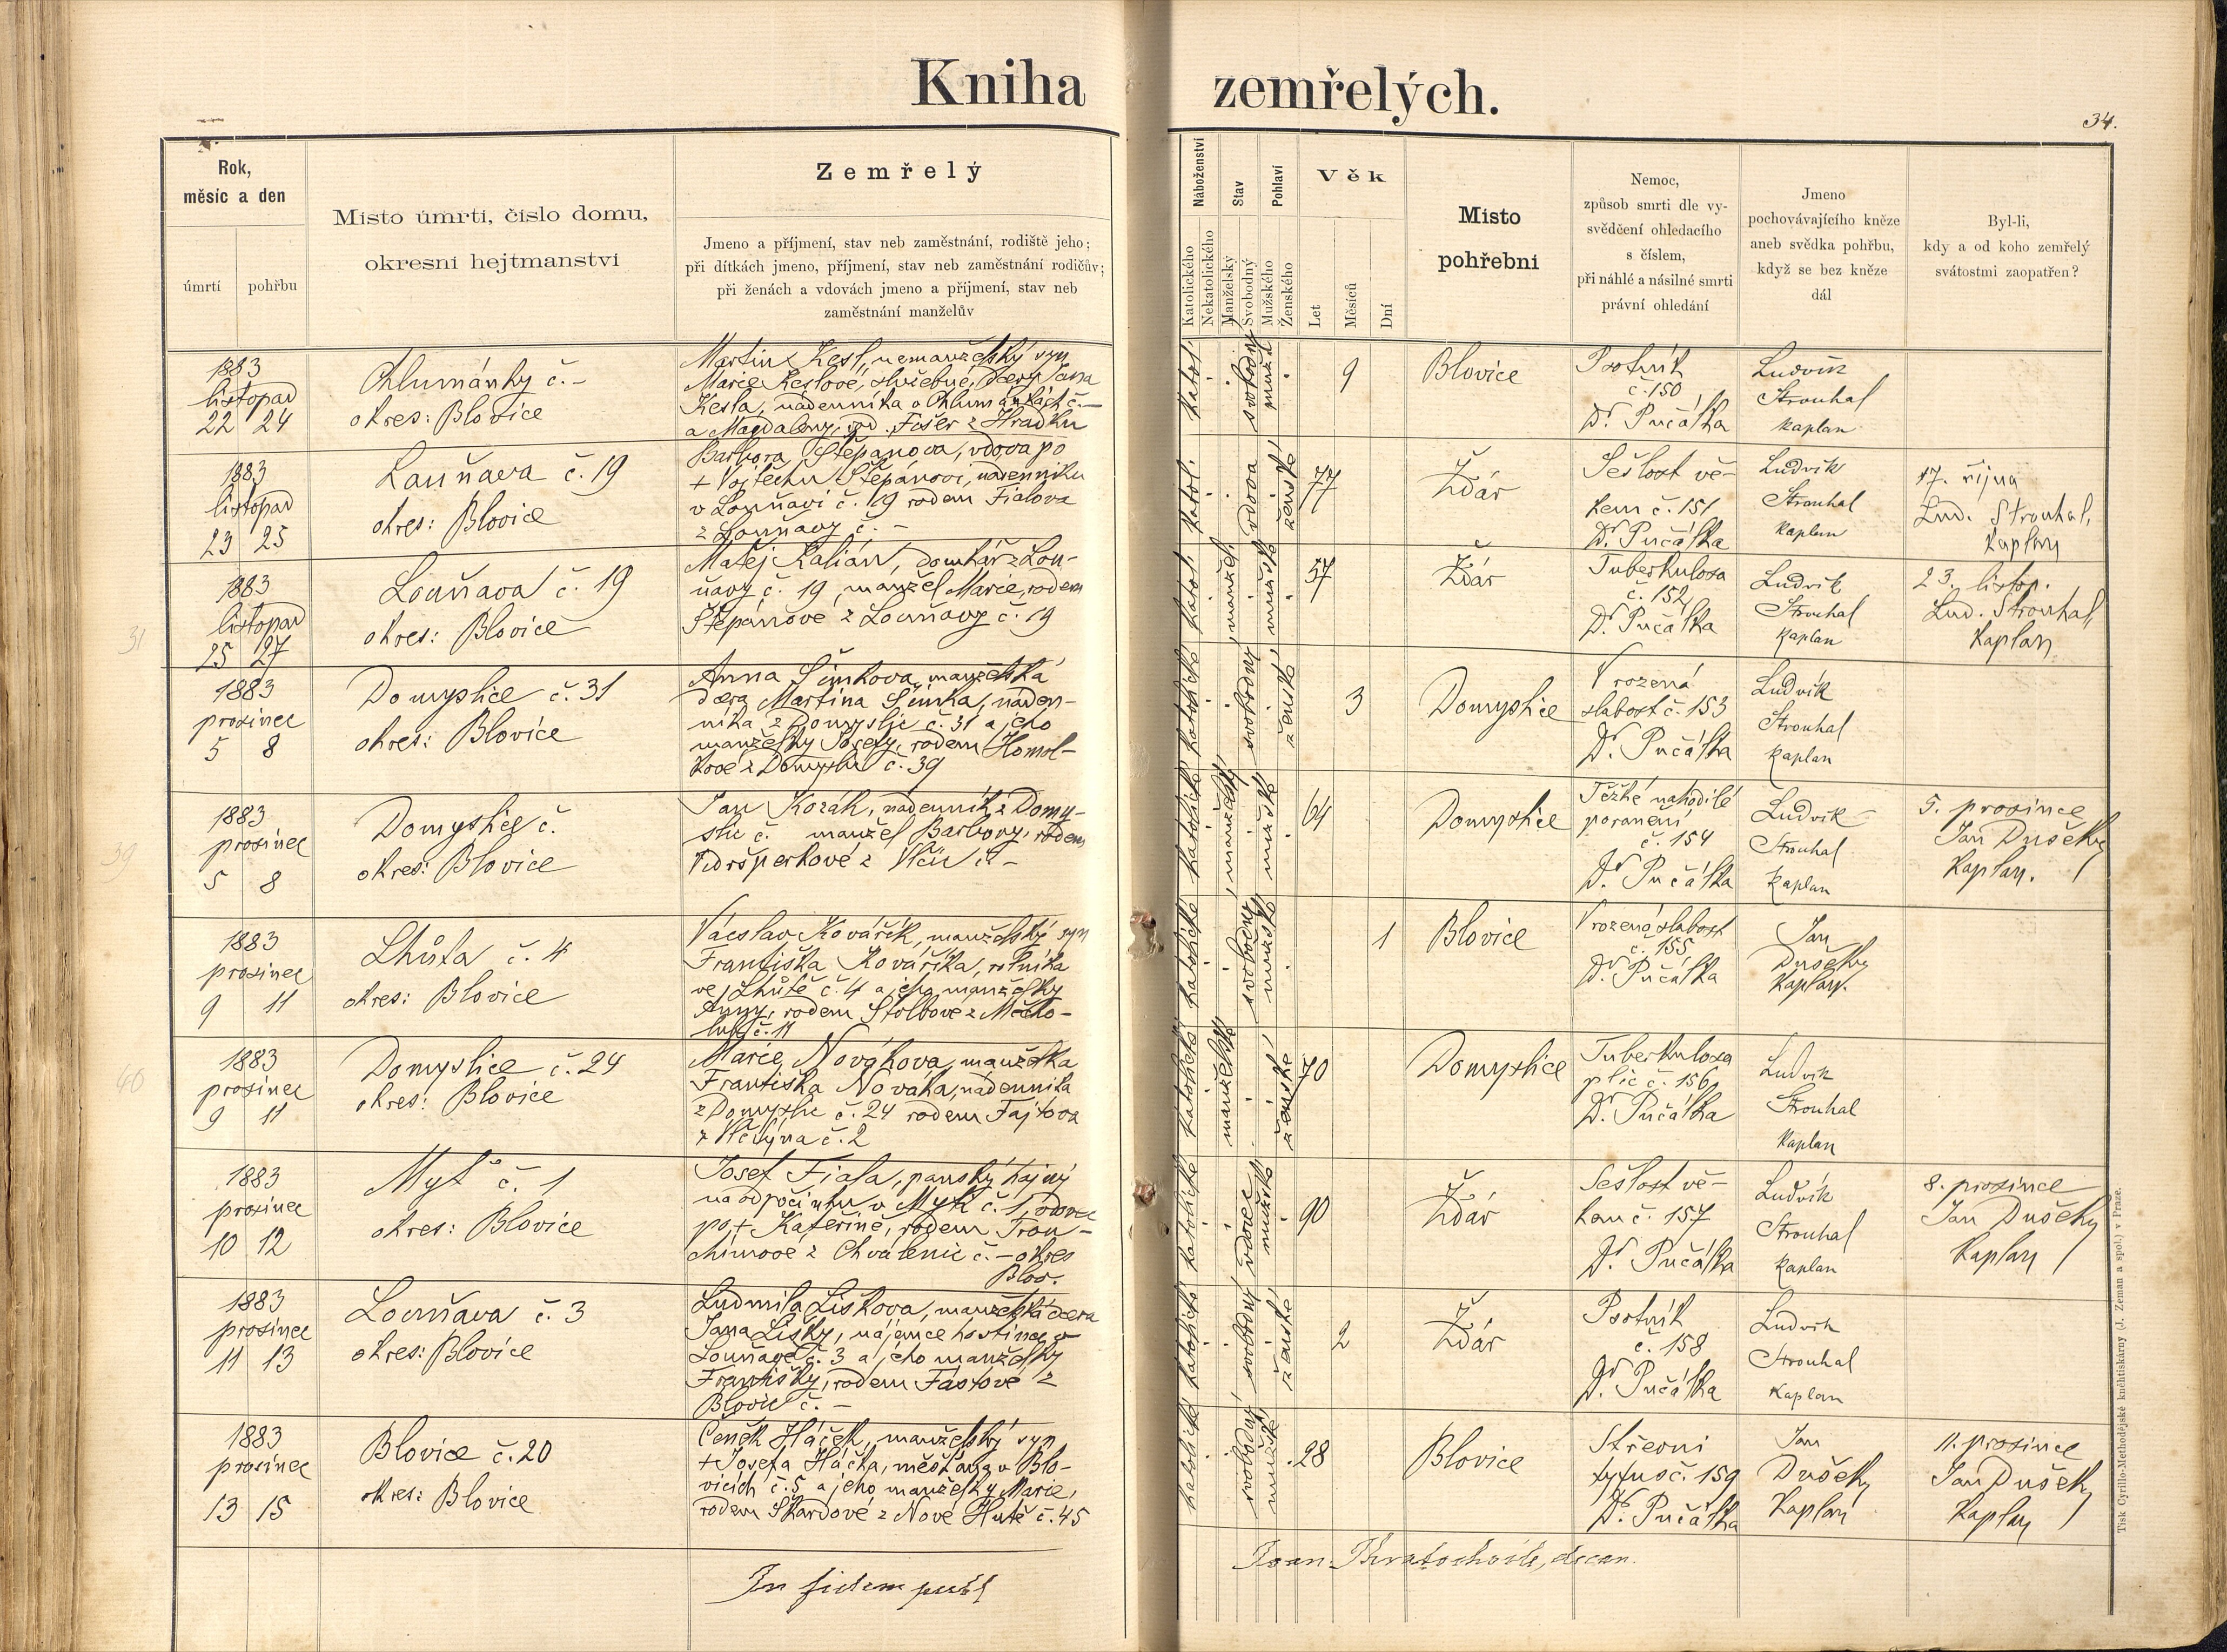 Kniha zemřelých.
34.
Rok,
měsíc a den
úmrtí
pohřbu
Místo úmrtí, číslo domu,
okresní hejtmanství
Zemřelý
Jmeno a příjmení, stav neb zaměstnání, rodiště jeho;
při dítkách jmeno, příjmení, stav neb zaměstnání rodičův;
při ženách a vdovách jmeno a příjmení, stav neb
zaměstnání manželův
Náboženství
Katolického
Nekatolického
Stav
Manželský
Svobodný
Pohlaví
Mužského
Ženského
Věk
Let
Měsíců
Dní
Místo
pohřební
Nemoc,
způsob smrti dle vy-
svědčení ohledacího
s číslem,
při náhlé a násilné smrti
právní ohledání
Jmeno
pochovávajícího kněze
aneb svědka pohřbu,
když se bez kněze
dál
Byl-li,
kdy a od koho zemřelý
svátostmi zaopatřen?
1883
listopad
22 24
Chlumánky č. -
okres: Blovice
Martin Kesl, nemanželský syn
Marie Keslové, služebné, dcery Jana
Kesla, nádenníka v Chlumánkách č. -
a Magdaleny, rod. Fišer z Hradku
katol.
svobodný
muž.
9
Blovice
Psotník
č. 150
Dr. Pučálka
Ludvík
Strouhal
kaplan
1883
listopad
23 25
Louňava č. 19
okres: Blovice
Barbora Štěpánova, vdova po
+ Vojtěchu Štěpánovi, nádenníku
v Louňavi č. 19 rodem Fialova
z Louňavy č. -
katol.
vdova
ženské
77
Ždár
Sešlost vě-
kem č. 151
Dr. Pučálka
Ludvík
Strouhal
kaplan
17. října
Lud. Strouhal,
kaplan
31
1883
listopad
25 27
Louňava č. 19
okres: Blovice
Matěj Kalián, domkář z Lou-
ňavy č. 19, manžel Marie, rodem
Štěpánové z Louňavy č. 19
katol.
manžel.
mužské
57
Ždár
Tuberkulosa
č. 152
Dr. Pučálka
Ludvík
Strouhal
kaplan
23. listop.
Lud. Strouhal,
kaplan
1883
prosinec
5 8
Domyslice č. 31
okres: Blovice
Anna Šimkova, manželská
dcera Martina Šimka, náden-
níka z Domyslic č. 31 a jeho
manželky Josefy, rodem Homol-
kové z Domyslic č. 39
katolické
svobodný
ženské
3
Domyslice
Vrozená
slabost č. 153
Dr. Pučálka
Ludvík
Strouhal
kaplan
39
1883
prosinec
5 8
Domyslice č.
okres: Blovice
Jan Kozák, nádenník z Domy-
slic č. manžel Barbory, rodem
z Vlčic č. -
katolické
manželský
mužské
64
Domyslice
Těžké nahodilé
poranění
č. 154
Dr. Pučálka
Ludvík
Strouhal
kaplan
5. prosince
Jan Dušek,
kaplan.
1883
prosinec
9 11
Lhůta č. 4
okres: Blovice
Václav Kovářík, manželský syn
Františka Kováříka, rolníka
ve Lhůtě č. 4 a jeho manželky
Anny, rodem Štolbové z Měcho-
lup č. 11
katolické
svobodný
mužské
1
Blovice
Vrozená slabost
č. 155
Dr. Pučálka
Jan
Dušek,
kaplan.
40
1883
prosinec
9 11
Domyslice č. 24
okres: Blovice
Marie Nováková, manželka
Františka Nováka, nádenníka
z Domyslic č. 24 rodem Fajtova
z Vlčtýna č. 2
katolické
manželské
ženské
70
Domyslice
Tuberkulosa
plic č. 156
Dr. Pučálka
Ludvík
Strouhal
kaplan
1883
prosinec
10 12
Myť č. 1
okres: Blovice
Josef Fiala, panský hajný
na odpočinku v Myti č. 1, vdovec
po + Kateřině, rodem Trou-
chimové z Chválenic č. - okres
Blov.
katolické
vdovec
mužské
90
Ždár
Sešlost vě-
kem č. 157
Dr. Pučálka
Ludvík
Strouhal
kaplan
8. prosince
Jan Dušek,
kaplan
1883
prosinec
11 13
Louňava č. 3
okres: Blovice
Ludmila Lišková, manželská dcera
Jana Lišky, nájemce hostince v
Louňavě č. 3 a jeho manželky
Františky, rodem Fástové z
Blovic č. -
katolické
svobodný
ženské
2
Ždár
Psotník
č. 158
Dr. Pučálka
Ludvík
Strouhal
kaplan
1883
prosinec
13 15
Blovice č. 20
okres: Blovice
Čeněk Háček, manželský syn
+ Josefa Háčka, měšťana v Blo-
vicích č. 5 a jeho manželky Marie,
rodem Škardové z Nové Hutě č. 45
katolické
svobodný
mužské
28
Blovice
Střevní
tyfus č. 159
Dr. Pučálka
Jan
Dušek,
kaplan
11. prosince
Jan Dušek,
kaplan
In fidem publ
Joan. Kratochvíle, decan.
Tisk Cyrillo-Methodějské knihtiskárny (J. Zeman a spol.) v Praze.